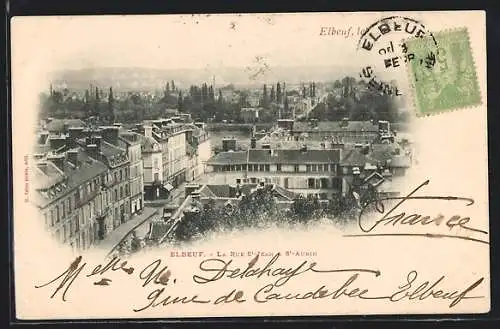 Elbeuf, le
ELBEUF
SEINE
FEVR
France
ELBEUF. - LA RUE St-JEAN & St-AUBIN
Melle M. Delahaye
Rue de Caudebec Elbeuf